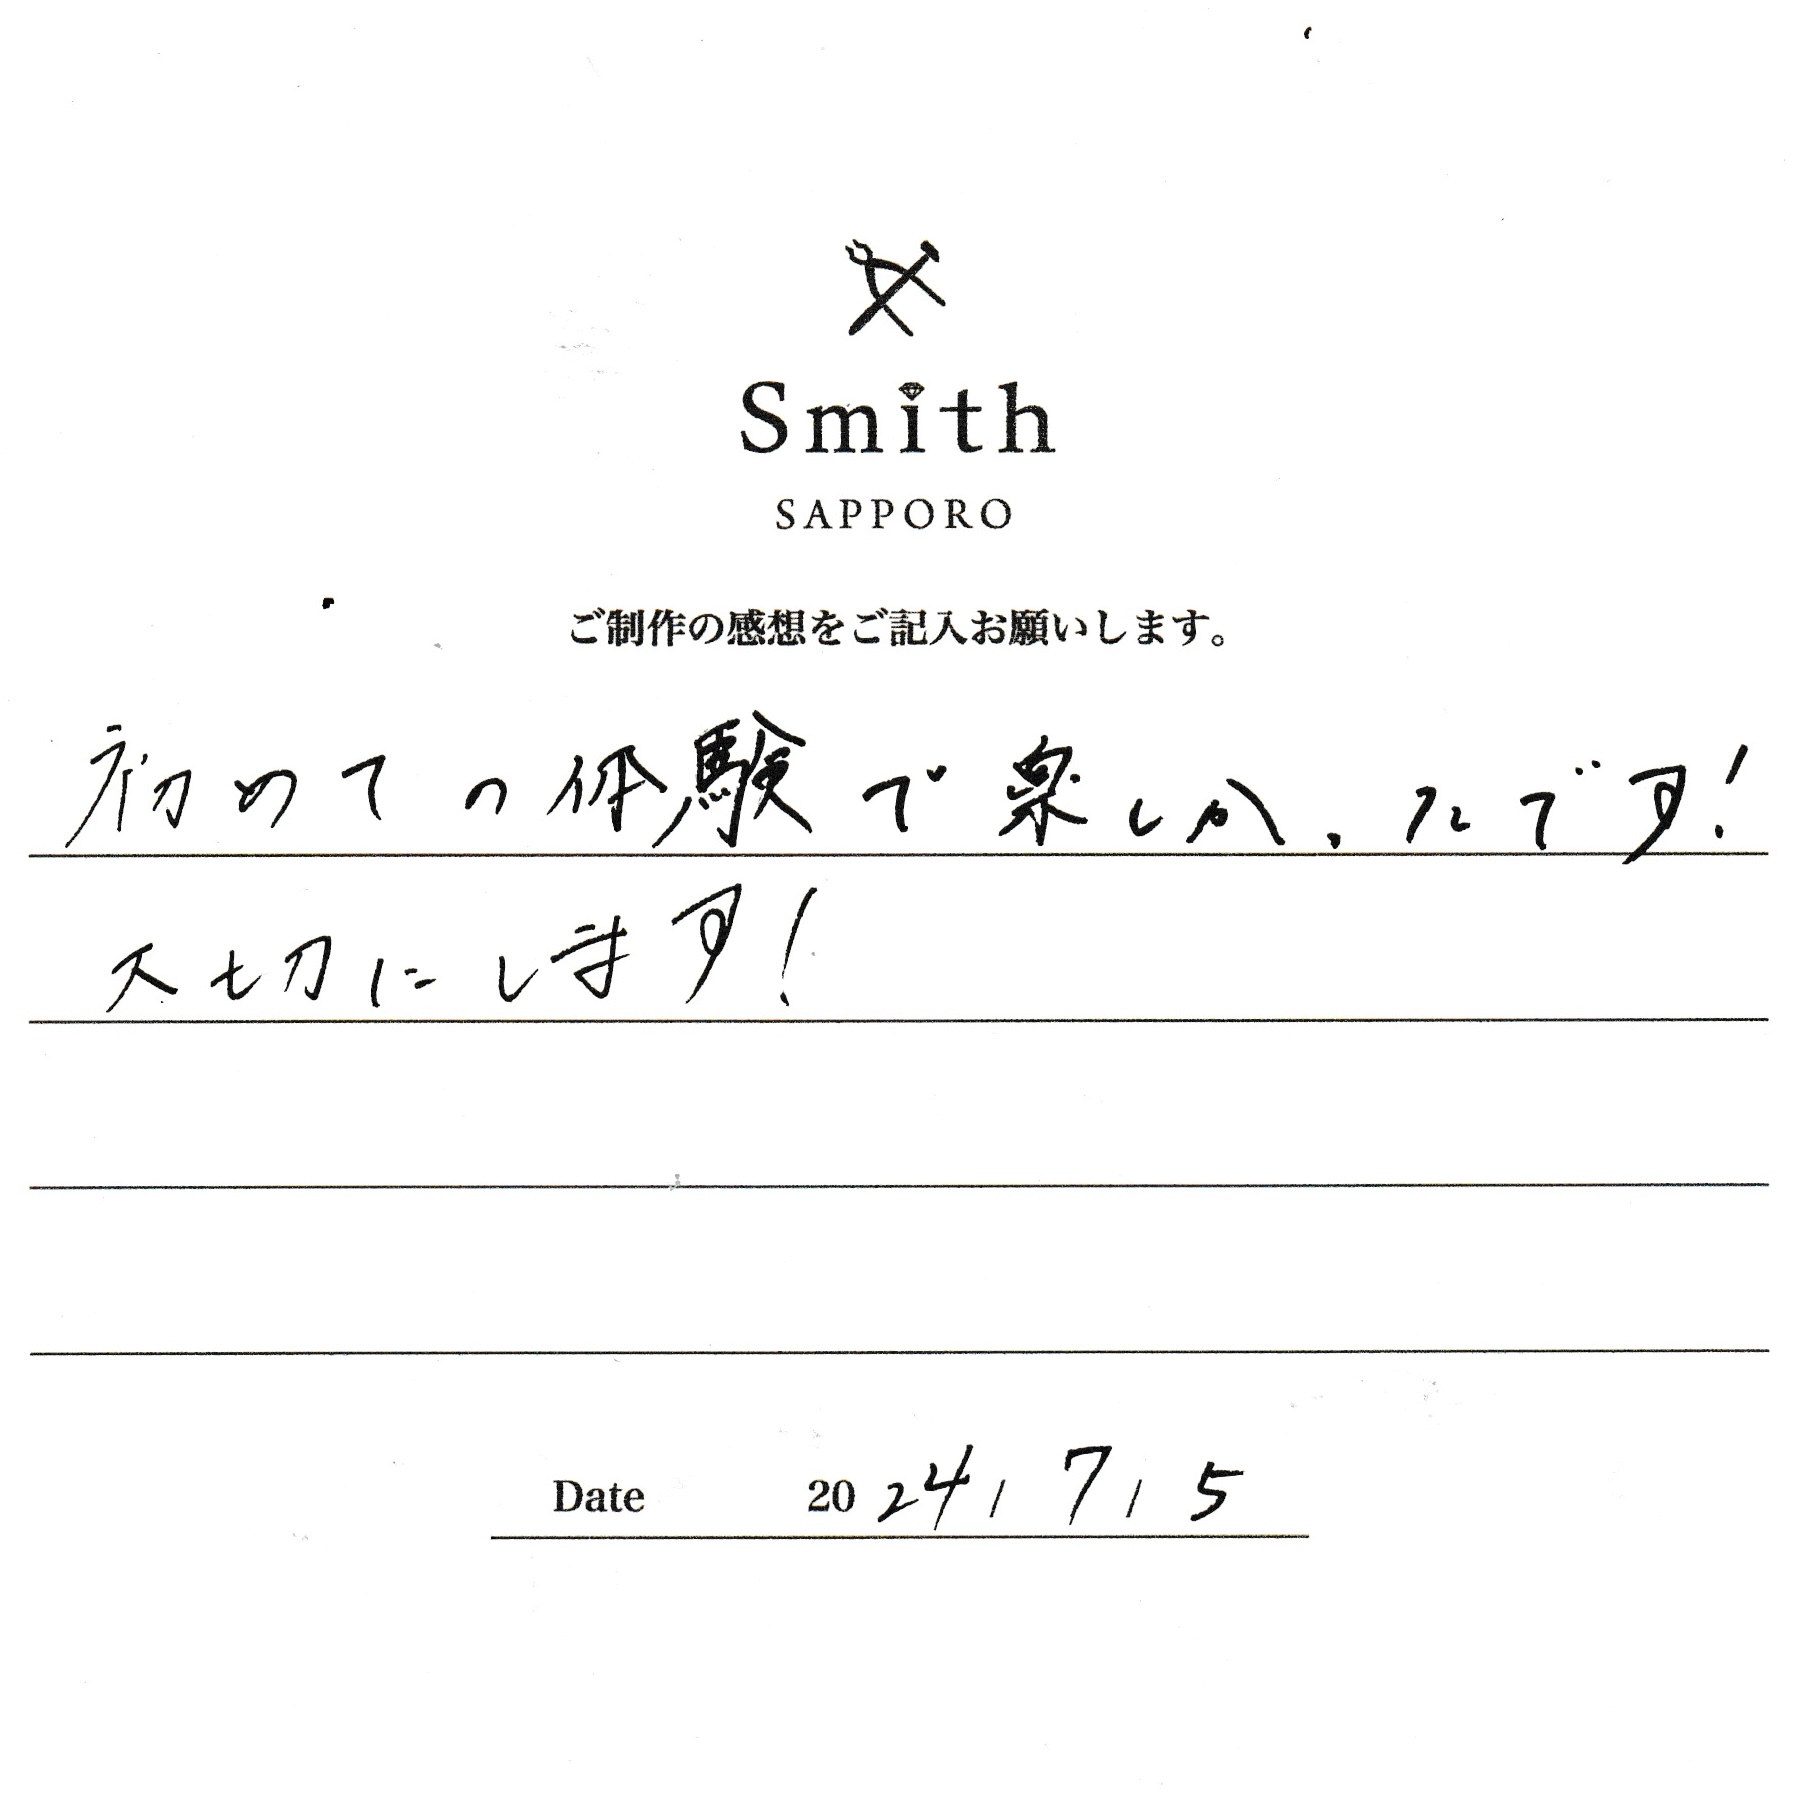 Smith
SAPPORO
ご制作の感想をご記入お願いします。
初めての体験で楽しかったです!
大切にします!
Date 2024/7/5